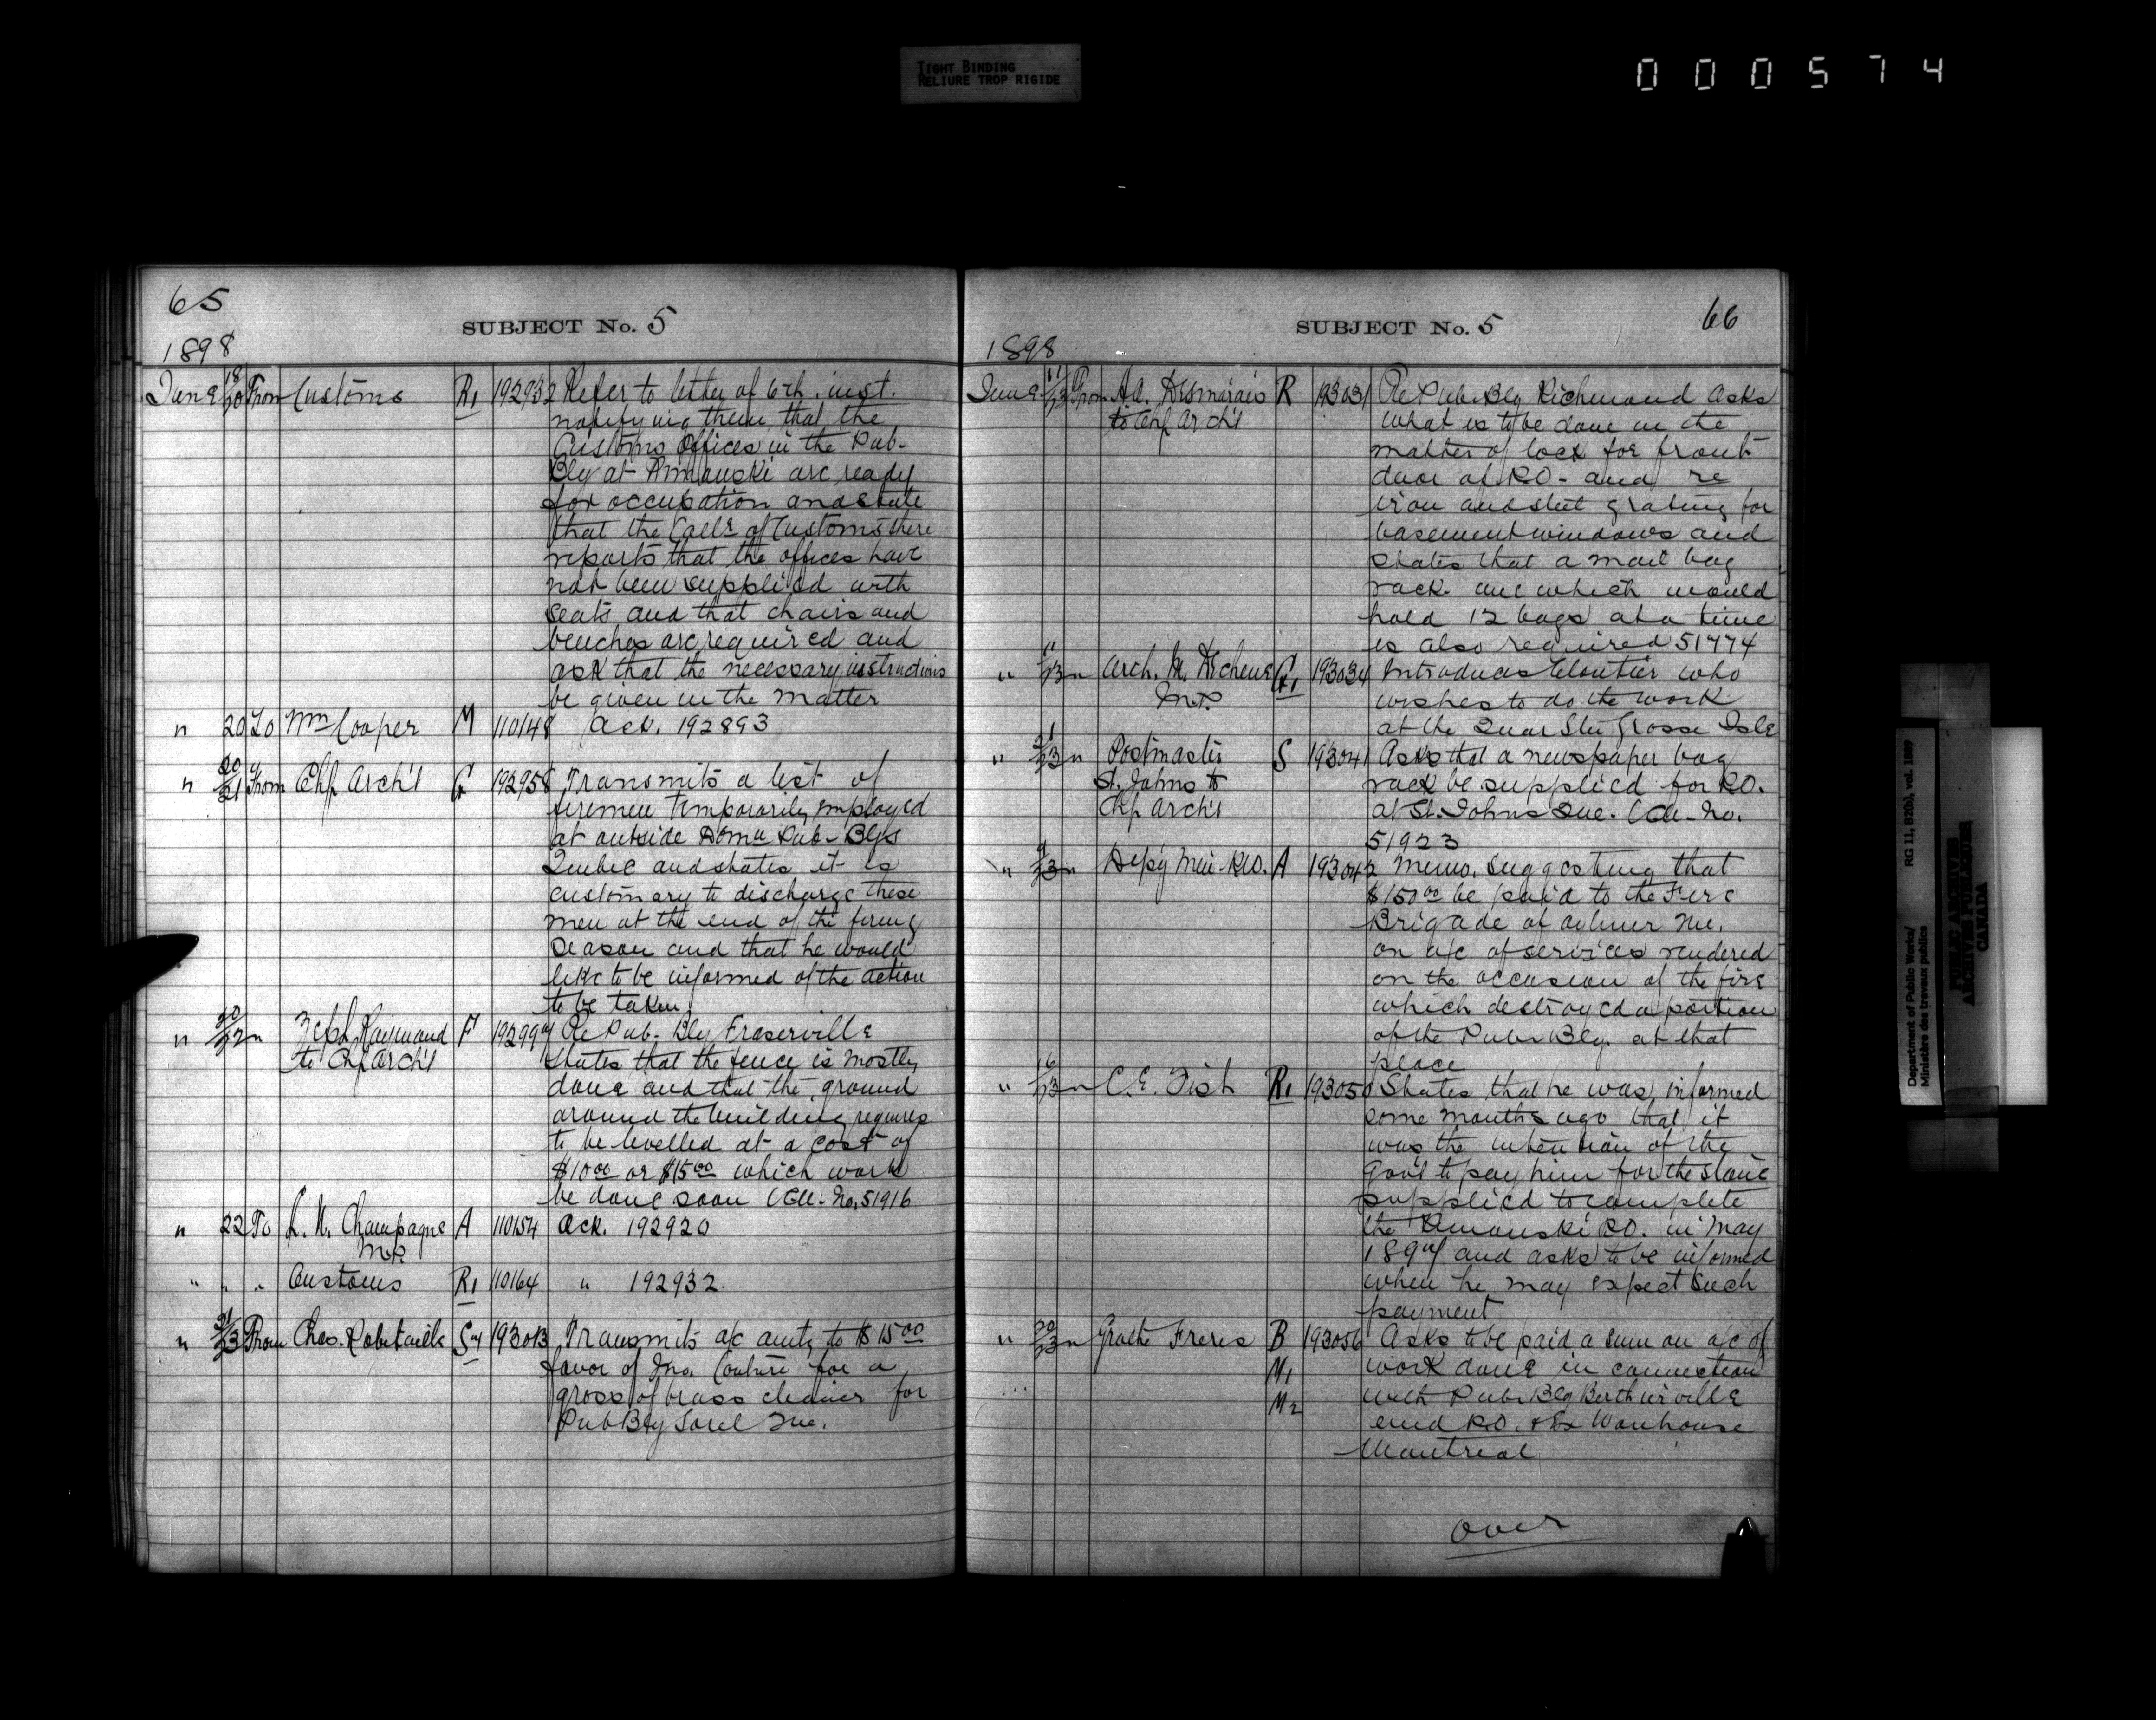 TIGHT BINDING
RELIURE TROP RIGIDE
000574
65
SUBJECT No. 5
1898
June 18/20 From Customs R1 192932 Refer to letter of 6th. inst.
notifying them that the
Customs Offices in the Pub-
Blg at Rimouski are ready
for occupation and state
that the Collr of Customs there
reports that the offices have
not been supplied with
seats and that chairs and
benches are required and
ask that the necessary instructions
be given in the matter
" 20 To Wm Cooper M 110148 Ack. 192893
" 20/21 From Chf Arch't Q 192958 Transmits a list of
firemen temporarily employed
at outside Domn Pub- Blgs
Quebec and states it is
customary to discharge these
men at the end of the firing
season and that he would
like to be informed of the action
to be taken.
" 20/22 " Zeph Raymond F 192994 Re Pub- Blg Fraserville
to Chf Arch't
states that the fence is mostly
done and that the ground
around the building requires
to be levelled at a cost of
$10.00 or $15.00 which work
be done soon (Ell- No. 51916
" 22 To L. N. Champagne A 110154 Ack. 192920
M.P.
" " " Customs R1 110164 " 192932.
" 21/23 From Chas. Robitaille 193013 Transmits a/c amtg to $15.00
favor of Jno. Couture for a
gross of brass cleaner for
Pub Blg Sorel Que.
66
SUBJECT No. 5
1898
June From Ad. Desmarais R 193031 Re Pub Blg Richmond Asks
to Chf Arch't
what is to be done in the
matter of lock for front
door of P.O. and re
iron and steel grating for
basement windows and
states that a mail bag
rack one which would
hold 12 bags at a time
is also required 51774
" 11/23 " Arch. M. Dechene G1 193034 Introduces Cloutier who
M.P.
wishes to do the work
at the Quar Stn Grosse Isle
" 21/23 " Postmaster S 193041 Asks that a newspaper bag
St. Johns to
rack be supplied for P.O.
Chf Arch't
at St. Johns Que. (Ell- No.
51923
" 9/23 " Dep'y Min. P.W. A 193042 Memo. suggesting that
$150.00 be paid to the Fire
Brigade of Aylmer Que.
on a/c of services rendered
on the occasion of the fire
which destroyed a portion
of the Pub Blg. at that
place
" 16/23 " C. E. Fish R1 193050 States that he was informed
some months ago that it
was the intention of the
Gov't to pay him for the stone
supplied to complete
the Rimouski P.O. in May
1897 and asks to be informed
when he may expect such
payment
" 20/23 " Grothe Freres B 193056 Asks to be paid a sum on a/c of
M1
work done in connection
M2
with Pub Blg Berthierville
and P.O. & Ex Warehouse
Montreal
over
Department of Public Works/ RG 11, B2(b), vol. 1897
Ministère des travaux publics
PUBLIC ARCHIVES
ARCHIVES PUBLIQUES
CANADA